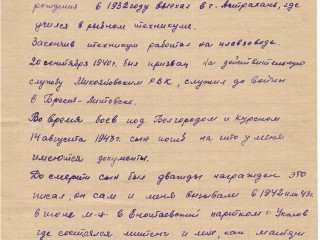 рождения в 1932 году выехал в г. Астрахань, где
учился в рыбном техникуме.
Закончив техникум работал на плавзаводе.
20 сентября 1940г. был призван на действительную
службу Микояновским РВК, служил до войны
в Брест-Литовске.
Во время боев под Белгородом и Курском
14 августа 1943г. сын погиб на что у меня
имеются документы.
До смерти сын был дважды награжден это
писал, он сам и меня вызывали в 1942 или 43г.
в июне м-ц в Енотаевский партком г.
где состоялся митинг и мне, как матери